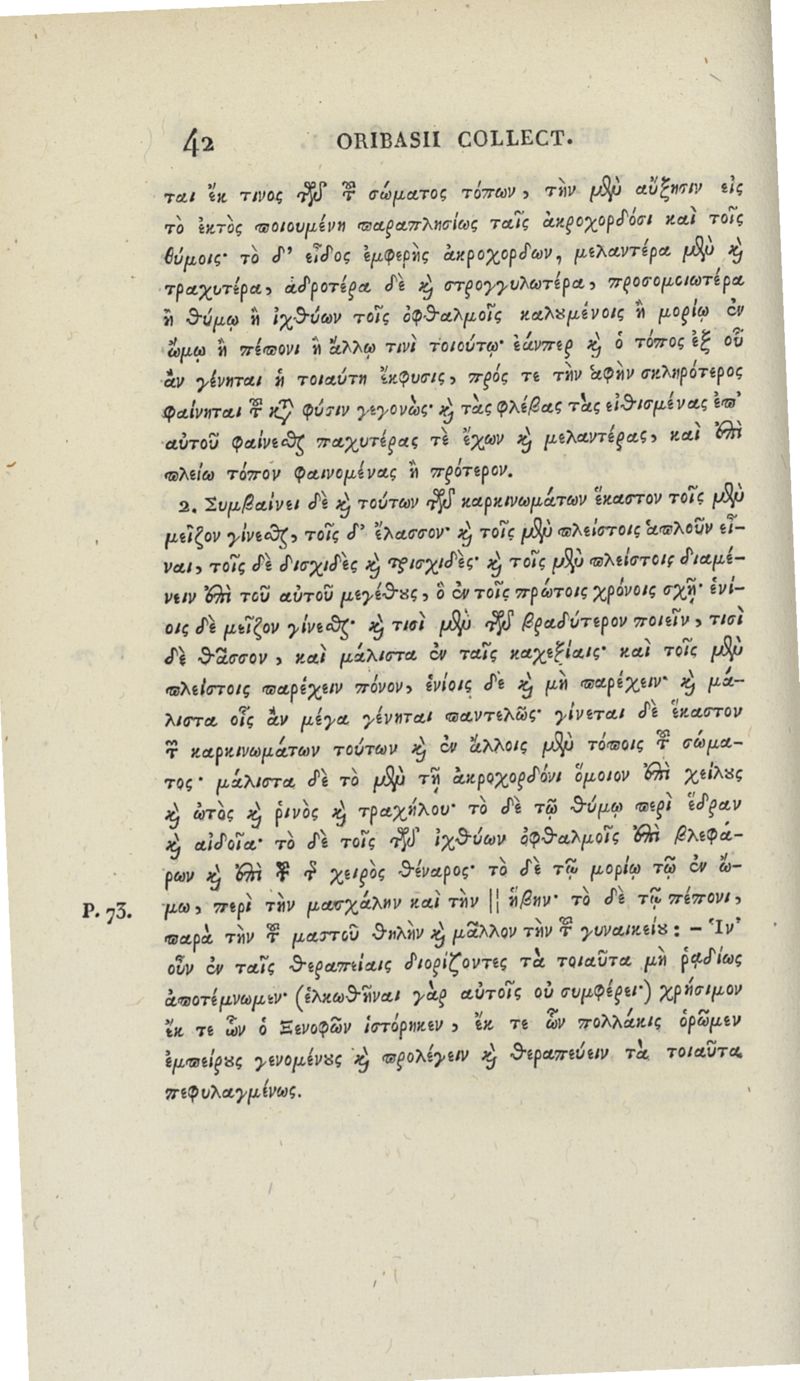 42 ORIBASII COLLECT.
ται ἔκ τινος τῶν τοῦ σώματος τόπων, τὴν μὲν αὔξησιν εἰς
τὸ ἐκτὸς ποιουμένη παραπλησίως ταῖς ἀκροχορδόσι καὶ τοῖς
θύμοις· τὸ δ' εἶδος ἐμφερὴς ἀκροχορδων, μελαντέρα μὲν καὶ
τραχυτέρα, ἁδροτέρα δὲ καὶ στρογγυλωτέρα, προσομοιωτέρα
ἢ θύμῳ ἢ ἰχθύων τοῖς ὀφθαλμοῖς καλουμένοις ἢ μορίῳ ἐν
ὤμῳ ἢ πέπονι ἢ ἄλλῳ τινὶ τοιούτῳ· ἐάνπερ καὶ ὁ τόπος ἐξ οὗ
ἂν γένηται ἡ τοιαύτη ἔκφυσις, πρός τε τὴν ἁφὴν σκληρότερος
φαίνηται τοῦ κατὰ φύσιν γεγονὼς· καὶ τὰς φλέβας τὰς εἰθισμένας ἐπ'
αὐτοῦ φαίνεσθαι παχυτέρας τὲ ἔχων καὶ μελαντέρας, καὶ ἐπὶ
πλείω τόπον φαινομένας ἢ πρότερον.
2. Συμβαίνει δὲ καὶ τούτων τῶν καρκινωμάτων ἕκαστον τοῖς μὲν
μεῖζον γίνεσθαι, τοῖς δ' ἔλασσον· καὶ τοῖς μὲν πλείστοις ἁπλοῦν εἶ-
ναι, τοῖς δὲ δισχιδὲς καὶ τρισχιδὲς· καὶ τοῖς μὲν πλείστοις διαμέ-
νειν ἐπὶ τοῦ αὐτοῦ μεγέθους, ὃ ἐν τοῖς πρώτοις χρόνοις σχῇ· ἐνί-
οις δὲ μεῖζον γίνεσθαι· καὶ τισὶ μὲν τῶν βραδύτερον ποιεῖν, τισὶ
δὲ θᾶσσον, καὶ μάλιστα ἐν ταῖς καχεξίαις· καὶ τοῖς μὲν
πλείστοις παρέχειν πόνον, ἐνίοις δὲ καὶ μὴ παρέχειν· καὶ μά-
λιστα οἷς ἂν μέγα γένηται παντελῶς· γίνεται δὲ ἕκαστον
τῶν καρκινωμάτων τούτων καὶ ἐν ἄλλοις μὲν τόποις τοῦ σώμα-
τος· μάλιστα δὲ τὸ μὲν τῇ ἀκροχορδόνι ὅμοιον ἐπὶ χείλους
καὶ ὠτὸς καὶ ῥινὸς καὶ τραχήλου· τὸ δὲ τῷ θύμῳ περὶ ἕδραν
καὶ αἰδοῖα· τὸ δὲ τοῖς τῶν ἰχθύων ὀφθαλμοῖς ἐπὶ βλεφά-
ρων καὶ ἐπὶ τοῦ τῆς χειρὸς θέναρος· τὸ δὲ τῷ μορίῳ τῷ ἐν ὤ-
P. 73. μῳ, περὶ τὴν μασχάλην καὶ τὴν || ἥβην· τὸ δὲ τῷ πέπονι,
παρὰ τὴν τοῦ μαστοῦ θηλὴν καὶ μᾶλλον τὴν τοῦ γυναικείου: – Ἵν'
οὖν ἐν ταῖς θεραπείαις διορίζοντες τὰ τοιαῦτα μὴ ῥᾳδίως
ἀποτέμνωμεν· (ἑλκωθῆναι γὰρ αὐτοῖς οὐ συμφέρει·) χρήσιμον
ἔκ τε ὧν ὁ Ξενοφῶν ἱστόρηκεν, ἔκ τε ὧν πολλάκις ὁρῶμεν
ἐμπείρους γενομένους καὶ προλέγειν καὶ θεραπεύειν τὰ τοιαῦτα
πεφυλαγμένως.